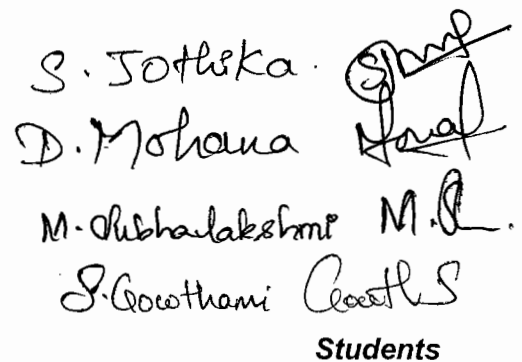 S. Jothika.
D. Mohana
M. Subhalakshmi M.S.
S. Gowthami Gowth S
Students